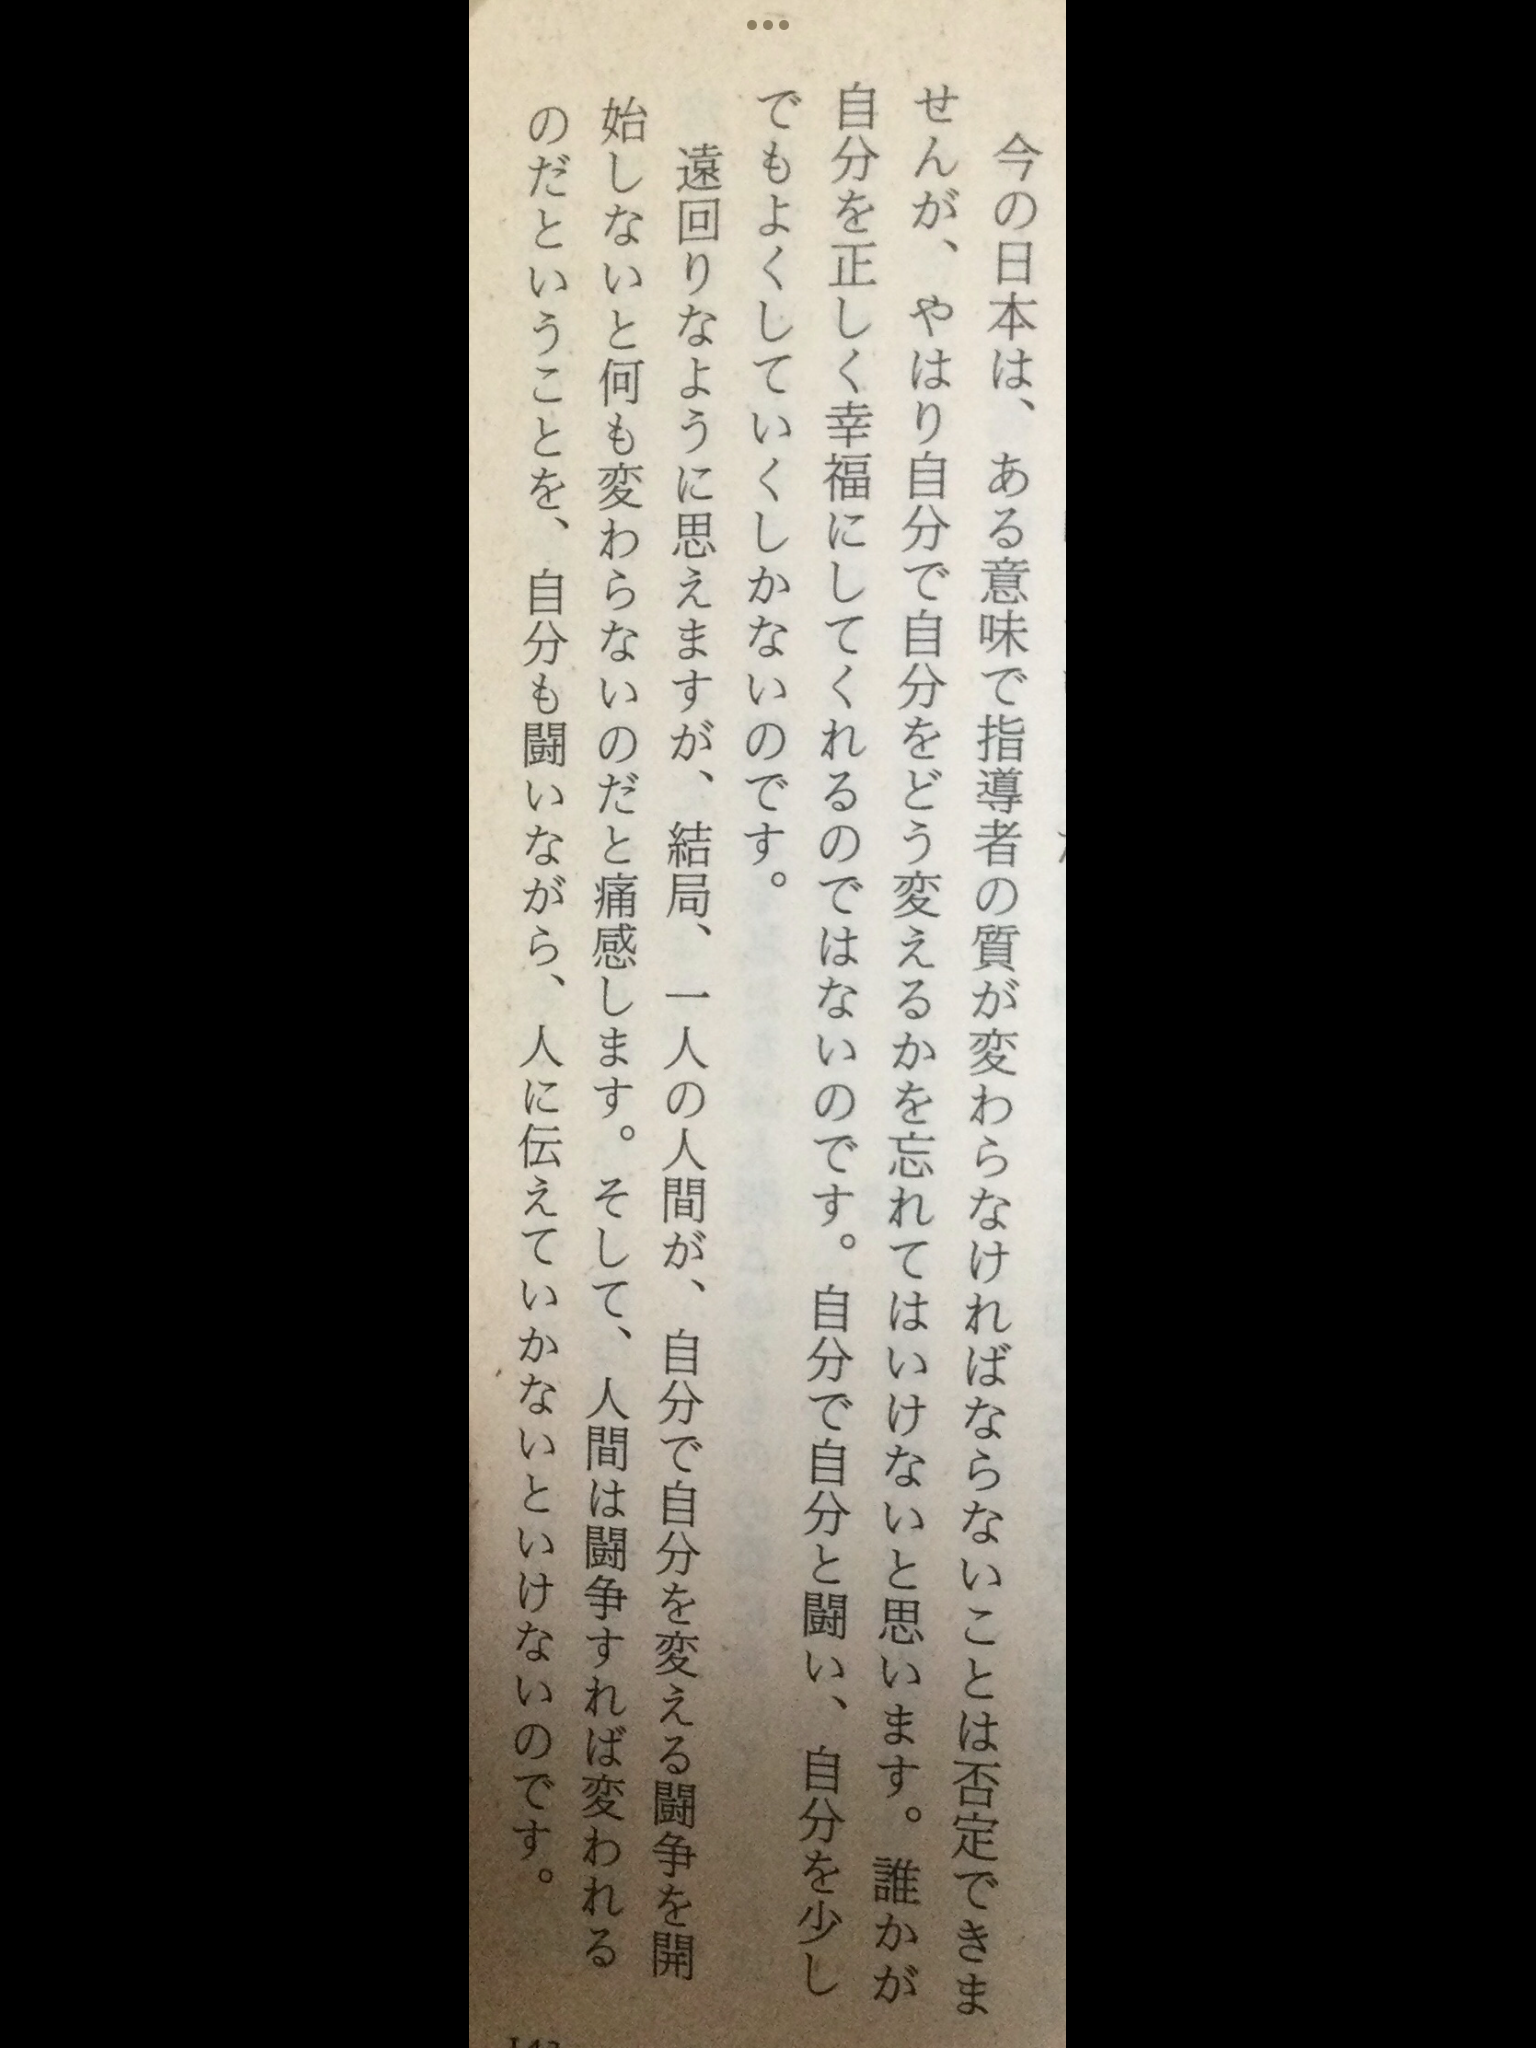 今の日本は、ある意味で指導者の質が変わらなければならないことは否定できま
せんが、やはり自分で自分をどう変えるかを忘れてはいけないと思います。誰かが
自分を正しく幸福にしてくれるのではないのです。自分で自分と闘い、自分を少し
でもよくしていくしかないのです。
遠回りなように思えますが、結局、一人の人間が、自分で自分を変える闘争を開
始しないと何も変わらないのだと痛感します。そして、人間は闘争すれば変われる
のだということを、自分も闘いながら、人に伝えていかないといけないのです。